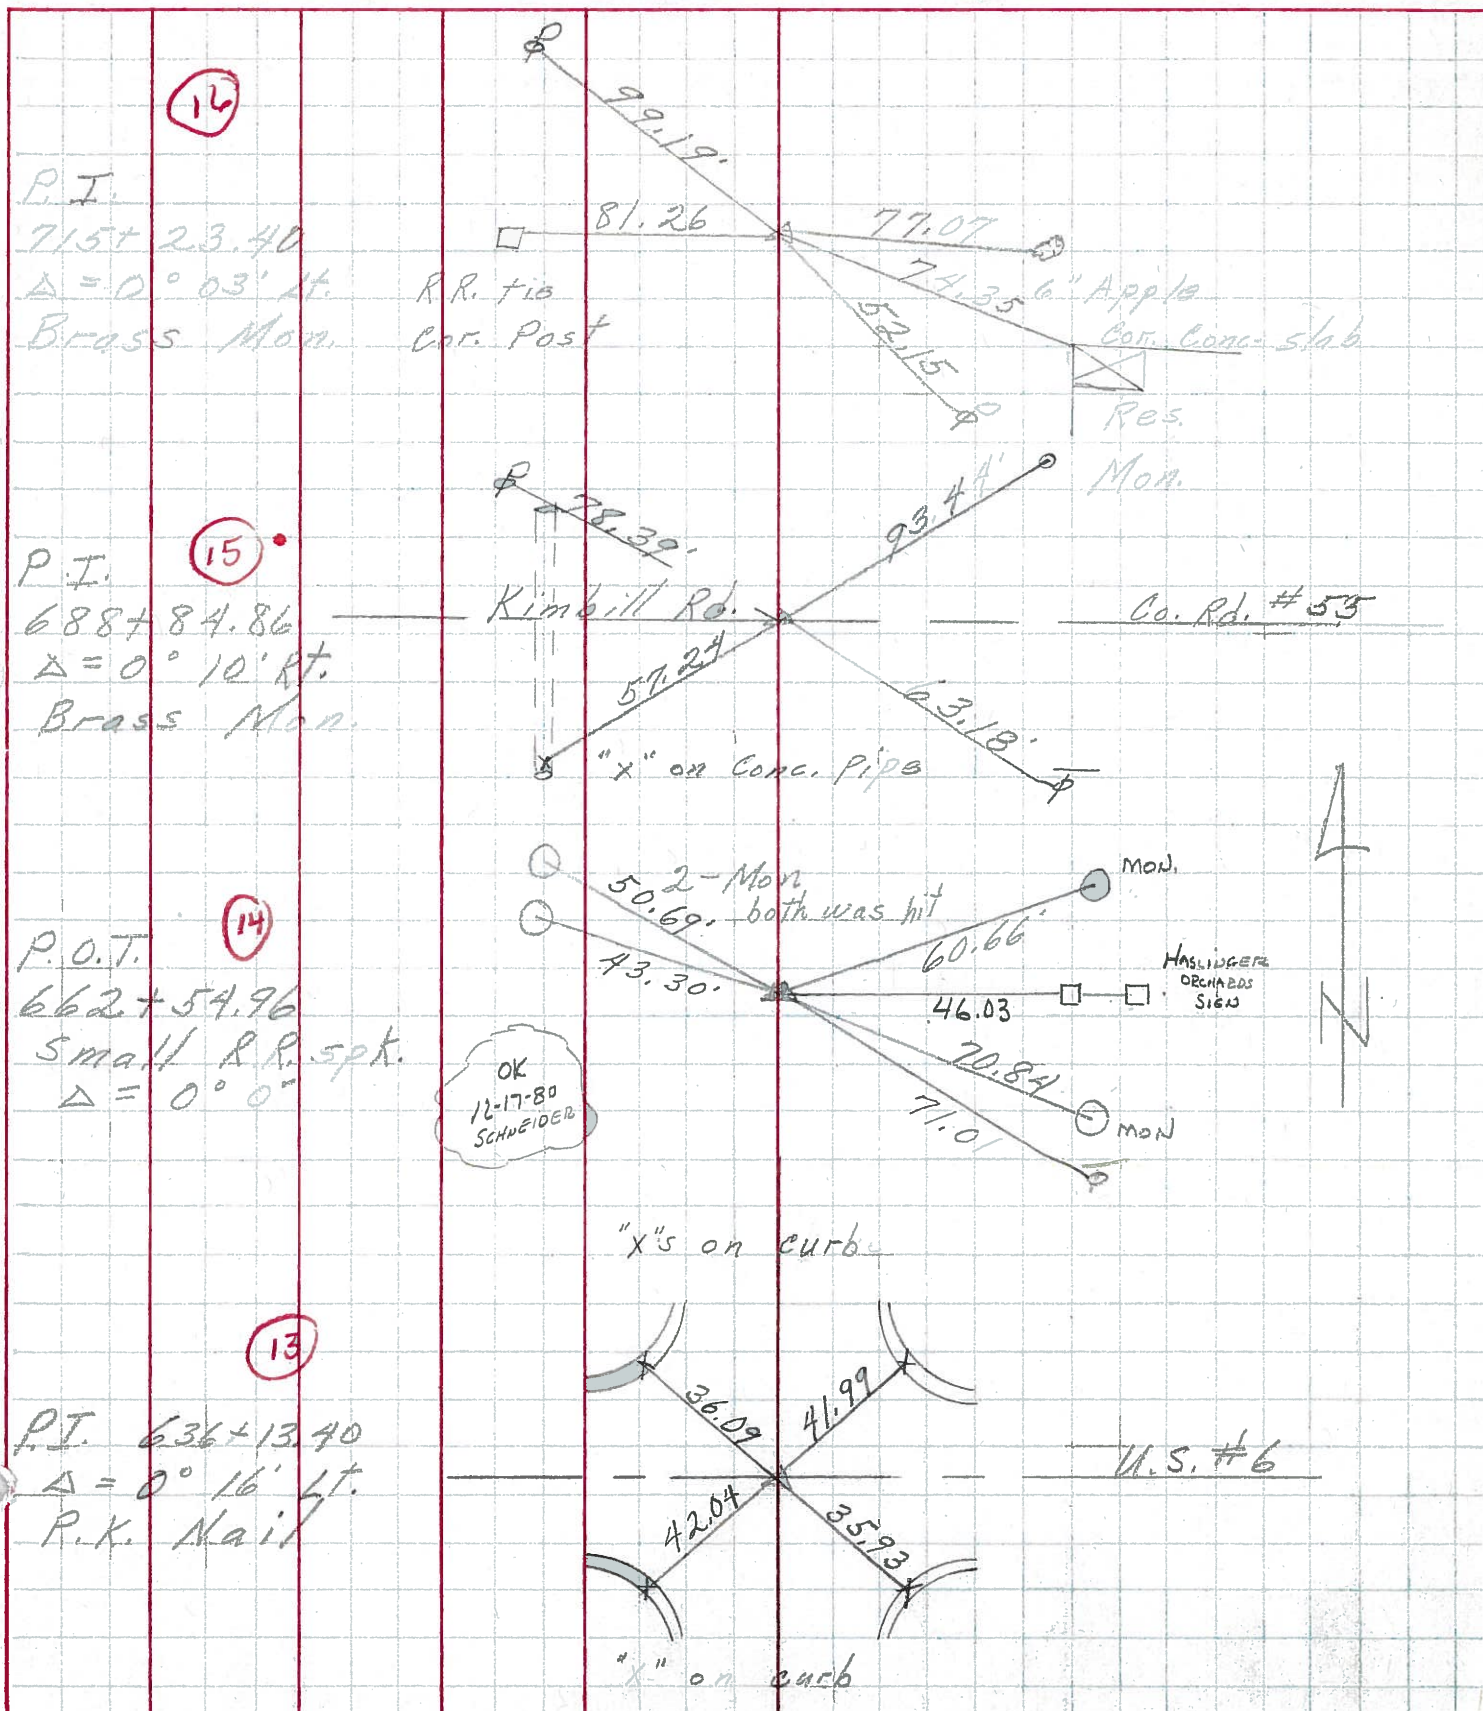 16
99.19'
P.I.
715+23.40
Δ = 0° 03' Lt.
Brass Mon.
81.26
77.07
R.R. tie
Cor. Post
74.35
6" Apple
Cor. Conc. slab
52.15
Res.
15
P.I.
688+84.86
Δ = 0° 10' Rt.
Brass Mon.
78.39'
93.44'
Mon.
Kimbill Rd.
Co. Rd. #55
57.24
63.18'
"x" on Conc. Pipe
14
P.O.T.
662+54.96
Small R.R. spk.
Δ = 0° 0"
2-Mon
both was hit
50.69'
43.30'
MON.
60.66'
46.03
HASLINGER
ORCHARDS
SIGN
70.84
MON
71.01
N
OK
12-17-80
SCHNEIDER
"x"s on curb
13
P.I. 636+13.40
Δ = 0° 16' Lt.
P.K. Nail
36.09
41.99
42.04
35.93
U.S. #6
"x" on curb